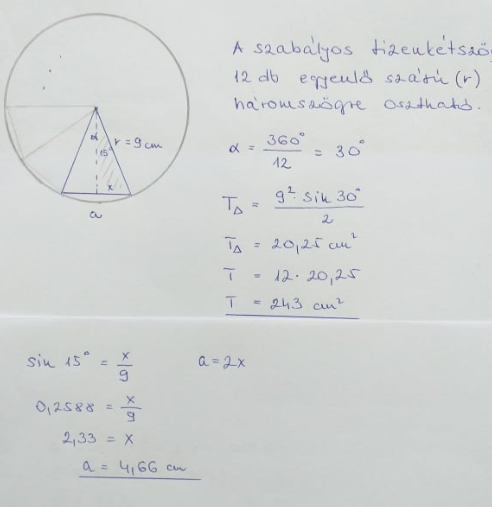 A szabályos tizenkétszög
12 db egyenlő szárú (r)
háromszögre osztható.
α
r = 9 cm
15°
x
a
α = 360°/12 = 30°
T△ = 9²·sin 30°/2
T△ = 20,25 cm²
T = 12·20,25
T = 243 cm²
sin 15° = x/9
a = 2x
0,2588 = x/9
2,33 = x
a = 4,66 cm